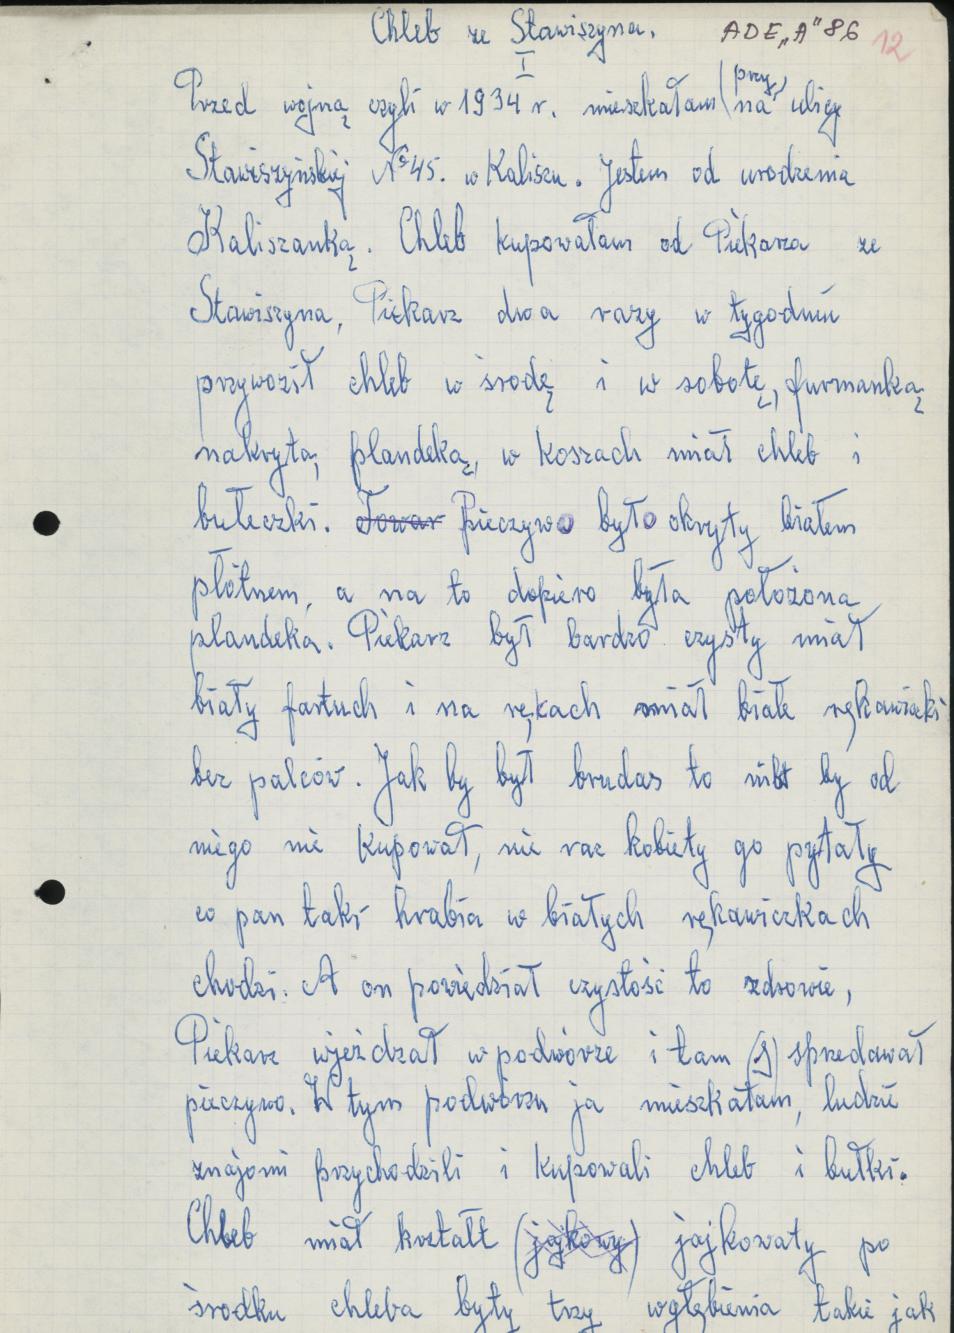 Chleb ze Stawiszyna. ADE„A" 86 12
I
Przed wojną czyli w 1934 r. mieszkałam (przy) na ulicy
Stawiszyńskiej No 45. w Kaliszu. Jestem od urodzenia
Kaliszanką. Chleb kupowałam od Piekarza ze
Stawiszyna, Piekarz dwa razy w tygodniu
przywoził chleb w środę i w sobotę, furmanką
nakrytą plandeką, w koszach miał chleb i
bułeczki. Towar Pieczywo było okryty białem
płótnem, a na to dopiero była położona
plandeka. Piekarz był bardzo czysty miał
biały fartuch i na rękach miał białe rękawiczki
bez palców. Jak by był brudas to nikt by od
niego nie kupował, nie raz kobiety go pytały
co pan taki hrabia w białych rękawiczkach
chodzi. A on powiedział czystość to zdrowie,
Piekarz wjeżdzał w podwórze i tam sprzedawał
pieczywo. W tym podwórzu ja mieszkałam, ludzie
znajomi przychodzili i kupowali chleb i bułki.
Chleb miał kształt (jajkowy) jajkowaty po
środku chleba były trzy wgłębienia takie jak